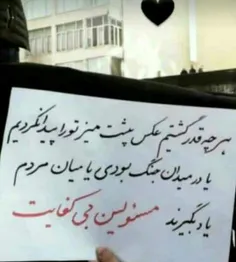 هر چه قدر گشتیم عکس پشت میز تو را پیدا نکردیم
یا در میدان جنگ بودی یا میان مردم
یاد بگیرند مسئولین بی کفایت